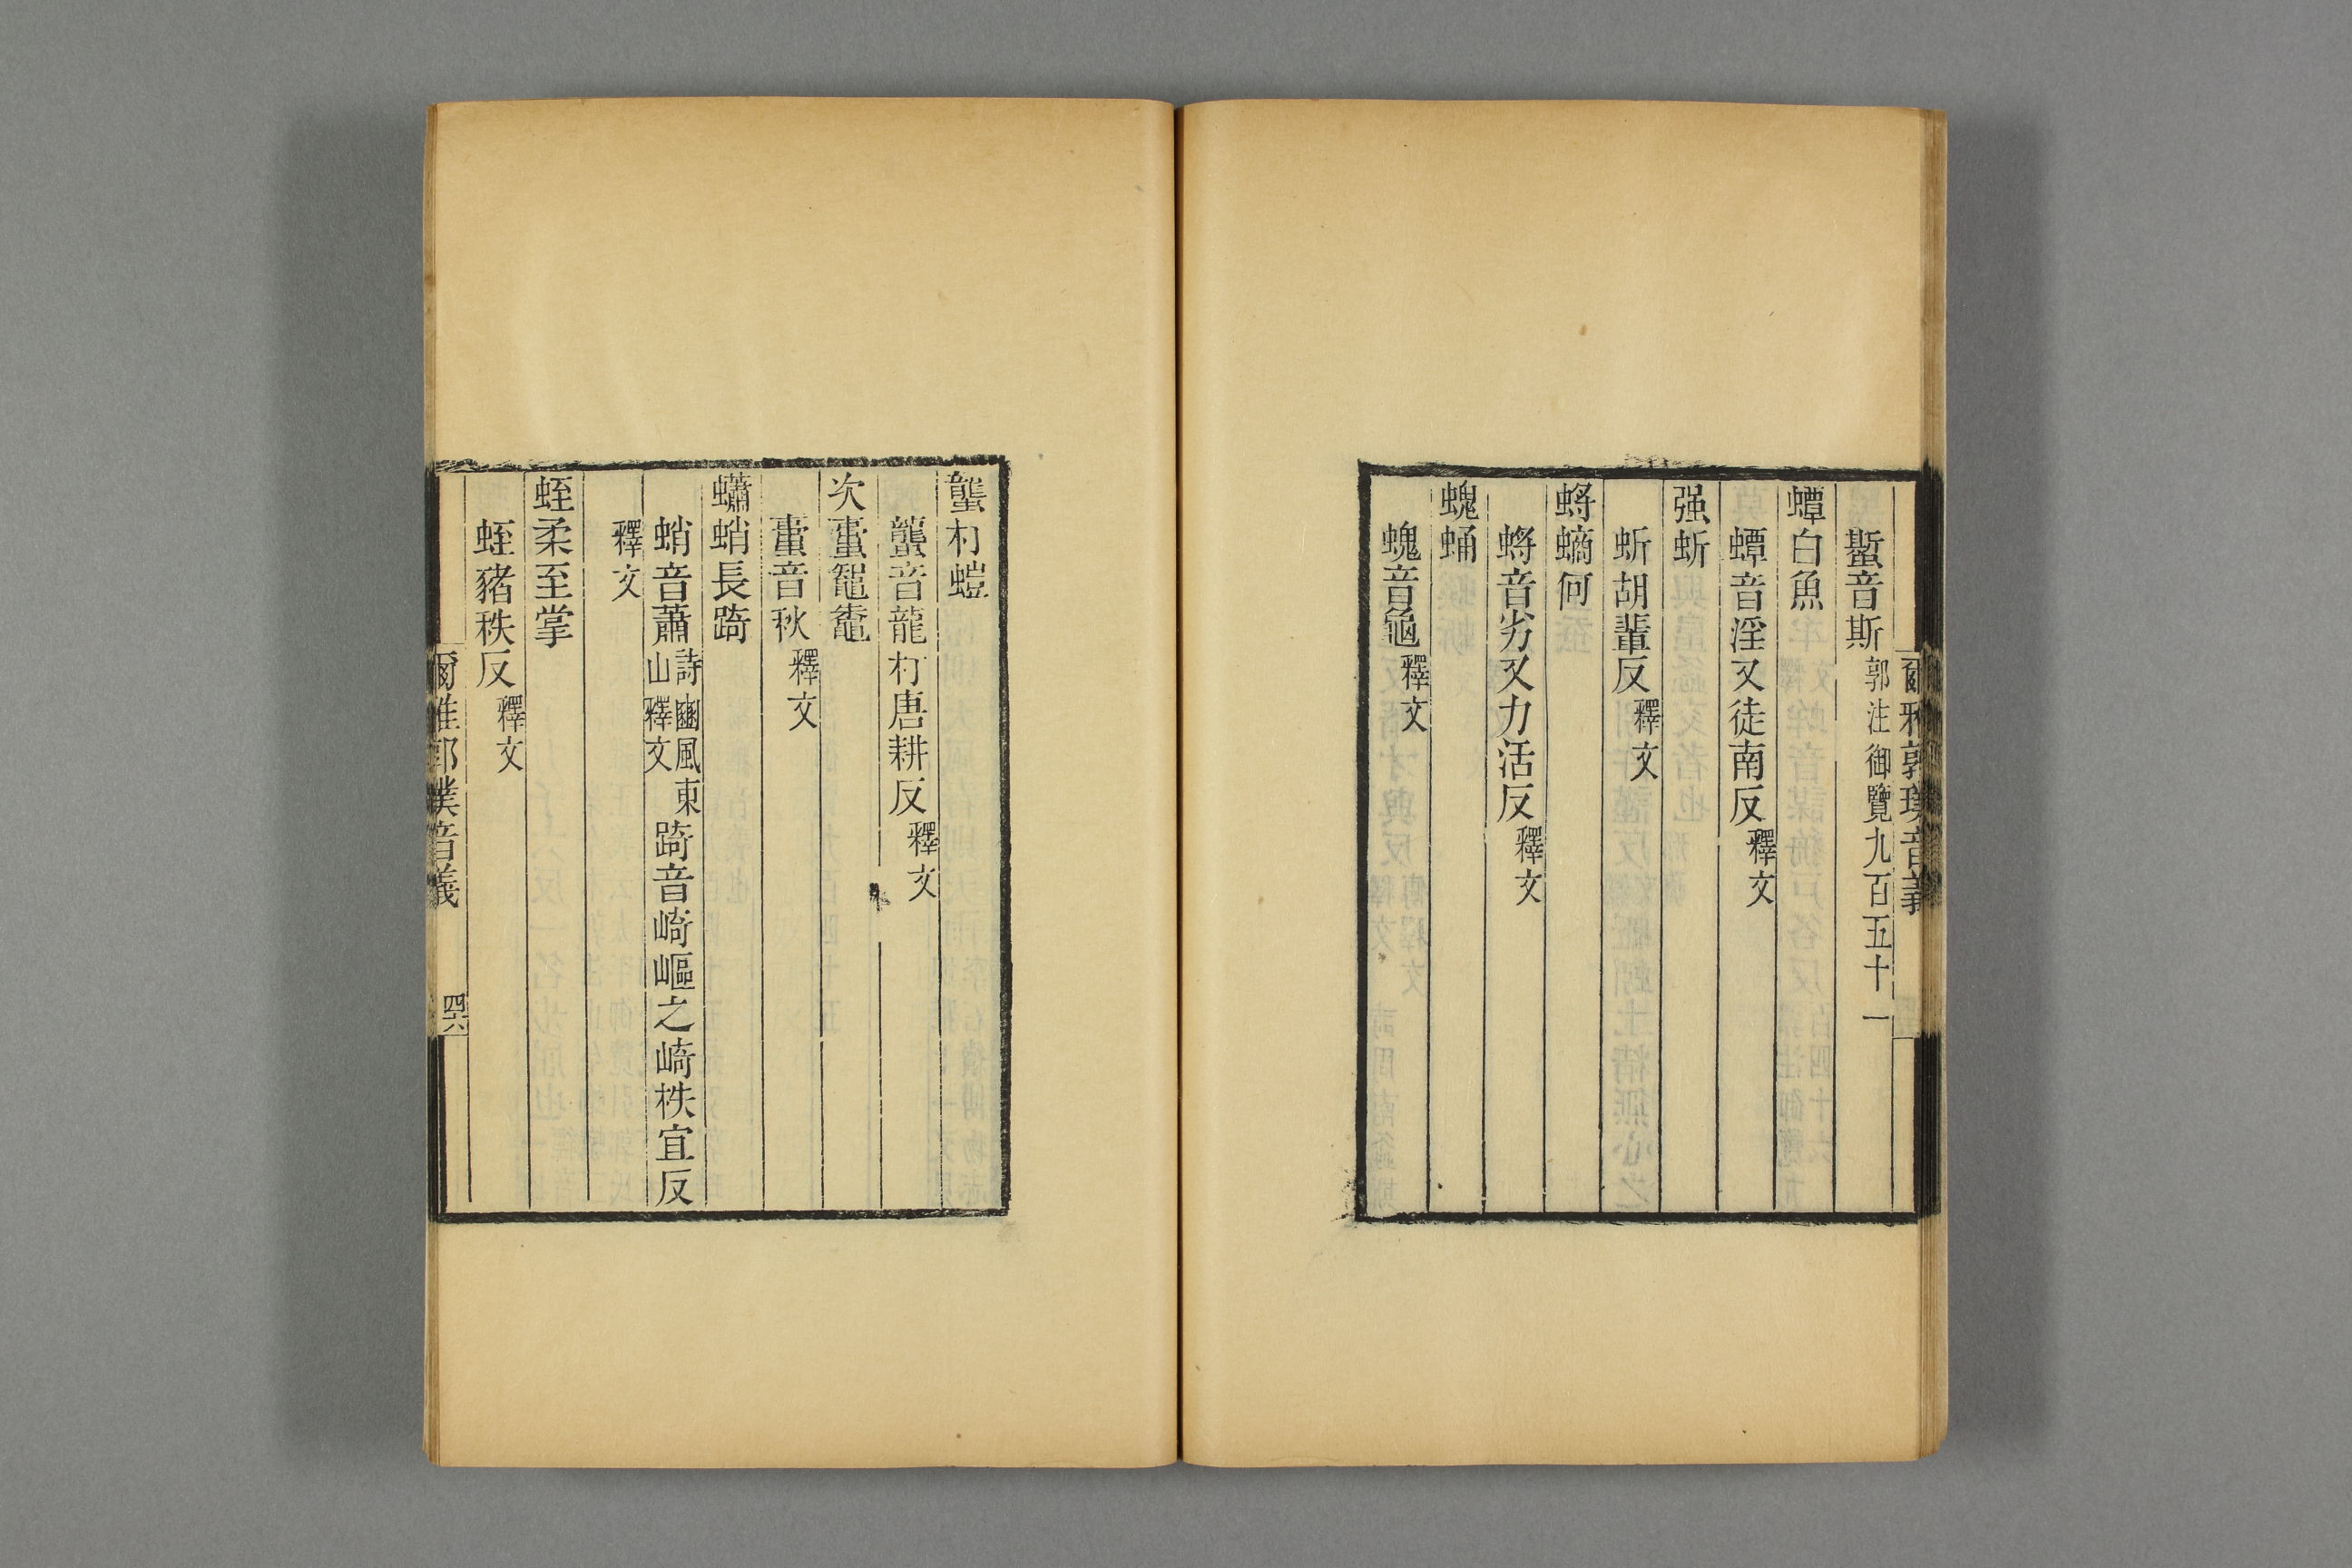 爾雅郭璞音義
蟴音斯郭注御覽九百五十一
蟫白魚
蟫音淫又徒南反釋文
强蚚
蚚胡輩反釋文
蛶螪何
蛶音劣又力活反釋文
螝蛹
螝音龜釋文
蠪朾螘
蠪音龍朾唐耕反釋文
次蟗鼅鼄
蟗音秋釋文
蠨蛸長踦
蛸音蕭詩豳風東山釋文踦音崎嶇之崎秩宜反
釋文
蛭柔至掌
蛭豬秩反釋文
爾雅郭璞音義 四六